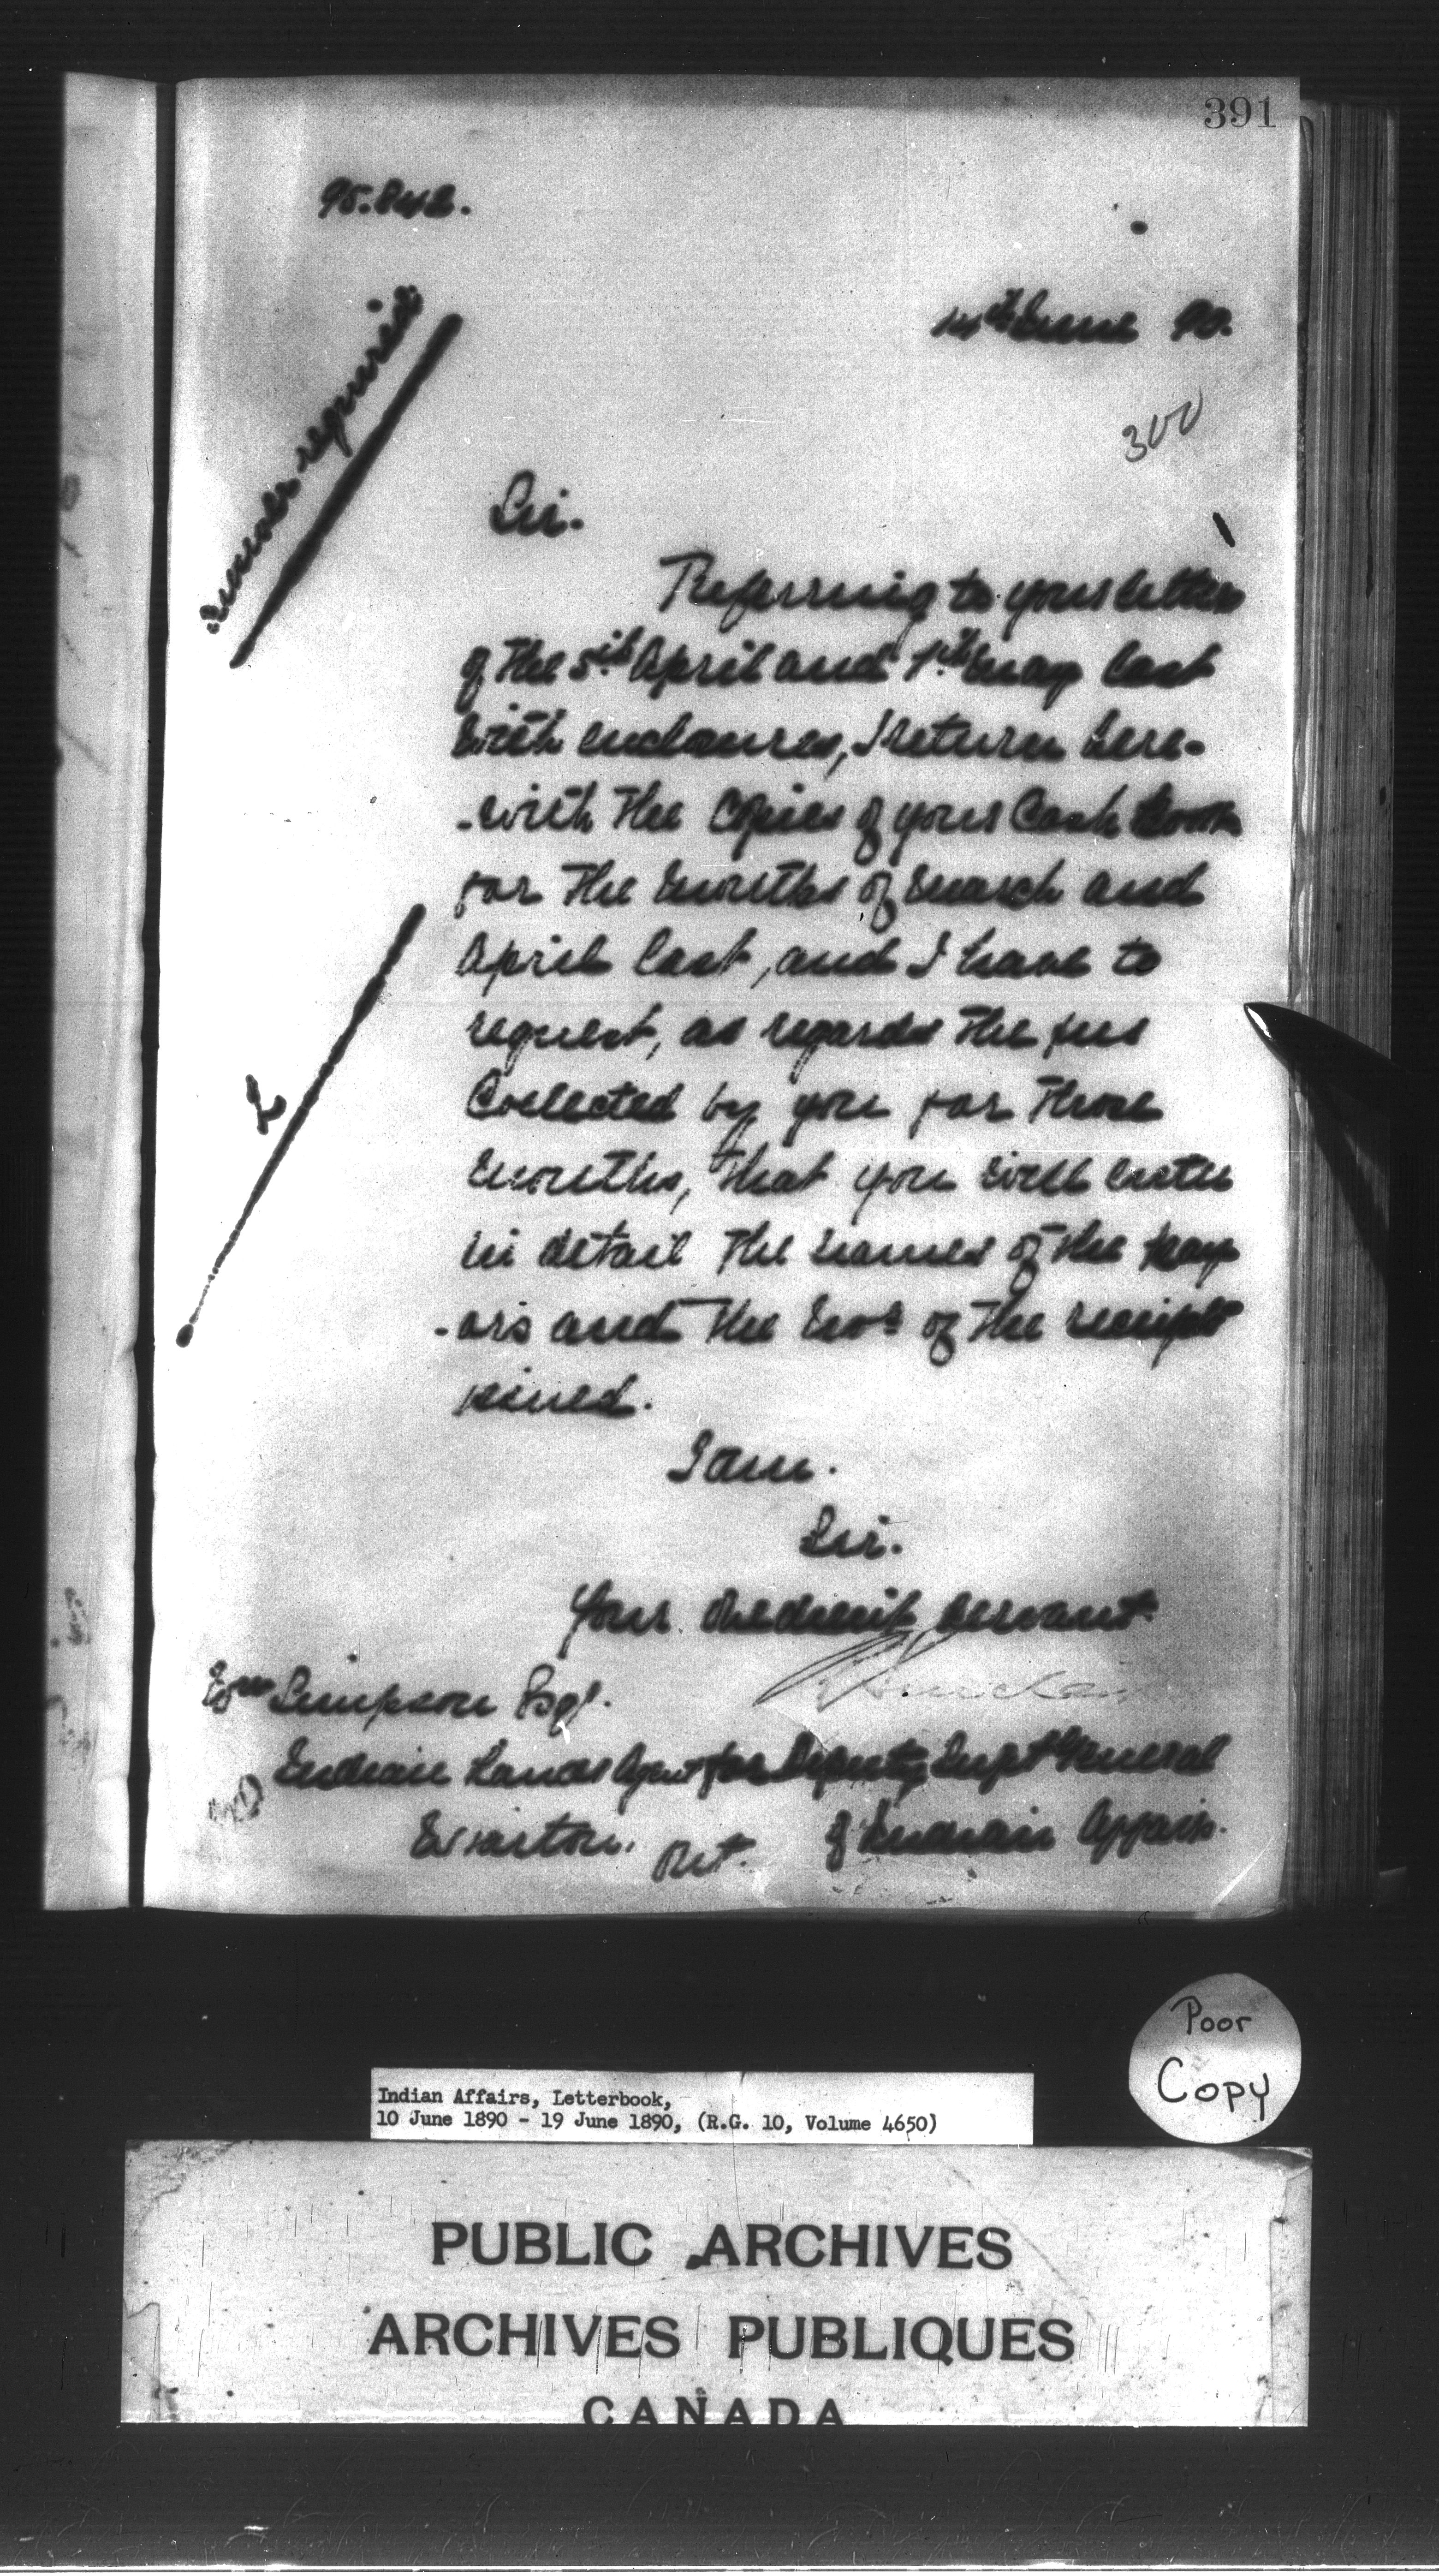 391
95.842.
14th June 90.
answer required
300
Sir.
Referring to your letters
of the 5th April and 7th May last
with enclosures, I return here-
-with the copies of your Cash Book
for the months of March and
April last, and I have to
request, as regards the fees
collected by you for those
months, that you will enter
in detail the names of the pay
-ors and the Nos of the receipts
issued.
I am.
Sir.
Your obedient servant
Wm Simpson Esqr.
Indian Lands Agent
for Deputy Supt General
Wiarton. Ont.
of Indian Affairs.
Poor
Copy
Indian Affairs, Letterbook,
10 June 1890 - 19 June 1890, (R.G. 10, Volume 4650)
PUBLIC ARCHIVES
ARCHIVES PUBLIQUES
CANADA